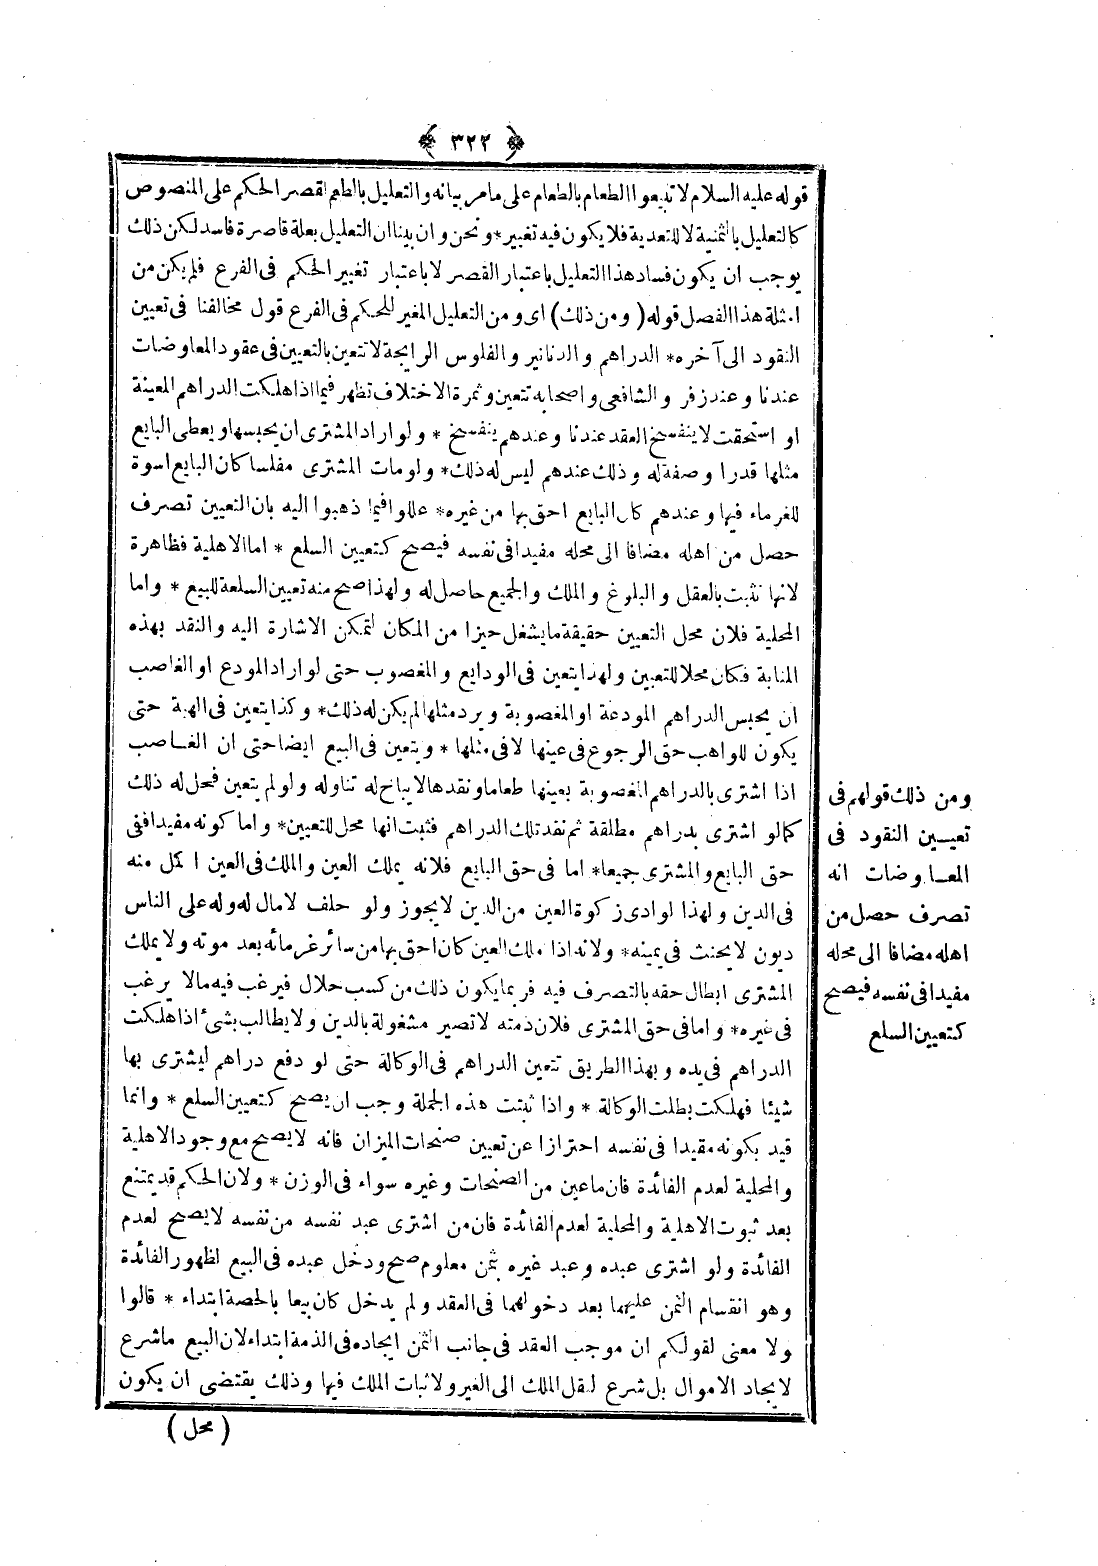 ﴿ ٣٢٢ ﴾
قوله عليه السلام لا تبيعوا الطعام بالطعام على ما مر بيانه والتعليل بالطعم لقصر الحكم على المنصوص
كالتعليل بالثمنية لا للتعدية فلا يكون فيه تغيير * ونحن وان بينا ان التعليل بعلة قاصرة فاسد لكن ذلك
يوجب ان يكون فساد هذا التعليل باعتبار القصر لا باعتبار تغيير الحكم فى الفرع فلم يكن من
امثلة هذا الفصل قوله ( ومن ذلك ) اى ومن التعليل المغير للحكم فى الفرع قول مخالفنا فى تعيين
النقود الى آخره * الدراهم والدنانير والفلوس الرايجة لا تتعين بالتعيين فى عقود المعاوضات
عندنا وعند زفر والشافعى واصحابه تتعين وثمرة الاختلاف تظهر فيما اذا هلكت الدراهم المعينة
او استحقت لا ينفسخ العقد عندنا وعندهم ينفسخ * ولو اراد المشترى ان يحبسها ويعطى البايع
مثلها قدرا وصفة له وذلك عندهم ليس له ذلك * ولو مات المشترى مفلسا كان البايع اسوة
للغرماء فيها وعندهم كان البايع احق بها من غيره * عللوا فيما ذهبوا اليه بان التعيين تصرف
حصل من اهله مضافا الى محله مفيدا فى نفسه فيصح كتعيين السلع * اما الاهلية فظاهرة
لانها تثبت بالعقل والبلوغ والملك والجميع حاصل له ولهذا صح منه تعيين السلعة للبيع * واما
المحلية فلان محل التعيين حقيقة ما يشغل حيزا من المكان لتمكن الاشارة اليه والنقد بهذه
المثابة فكان محلا للتعيين ولهذا يتعين فى الودايع والمغصوب حتى لو اراد المودع او الغاصب
ان يحبس الدراهم المودعة او المغصوبة ويرد مثلها لم يكن له ذلك * وكذا يتعين فى الهبة حتى
يكون للواهب حق الرجوع فى عينها لا فى مثلها * ويتعين فى البيع ايضا حتى ان الغـاصب
اذا اشترى بالدراهم المغصوبة بعينها طعاما ونقدها لا يباح له تناوله ولو لم يتعين فحل له ذلك
كما لو اشترى بدراهم مطلقة ثم نقد تلك الدراهم فثبت انها محل للتعيين * واما كونه مفيدا ففى
حق البايع والمشترى جميعا * اما فى حق البايع فلانه يملك العين والملك فى العين اكمل منه
فى الدين ولهذا لو ادى زكوة العين من الدين لا يجوز ولو حلف لا مال له وله على الناس
ديون لا يحنث فى يمينه * ولانه اذا ملك العين كان احق بها من سائر غرمائه بعد موته ولا يملك
المشترى ابطال حقه بالتصرف فيه فربما يكون ذلك من كسب حلال فيرغب فيه مالا يرغب
فى غيره * واما فى حق المشترى فلان ذمته لا تصير مشغولة بالدين ولا يطالب بشئ اذا هلكت
الدراهم فى يده وبهذا الطريق تتعين الدراهم فى الوكالة حتى لو دفع دراهم ليشترى بها
شيئا فهلكت بطلت الوكالة * واذا ثبتت هذه الجملة وجب ان يصح كتعيين السلع * وانما
قيد بكونه مقيدا فى نفسه احترازا عن تعيين صنجات الميزان فانه لا يصح مع وجود الاهلية
والمحلية لعدم الفائدة فان ما عين من الصنجات وغيره سواء فى الوزن * ولان الحكم قد يمتنع
بعد ثبوت الاهلية والمحلية لعدم الفائدة فان من اشترى عبد نفسه من نفسه لا يصح لعدم
الفائدة ولو اشترى عبده وعبد غيره بثمن معلوم صح ودخل عبده فى البيع لظهور الفائدة
وهو انقسام الثمن عليهما بعد دخولهما فى العقد ولم يدخل كان بيعا بالحصة ابتداء * قالوا
ولا معنى لقولكم ان موجب العقد فى جانب الثمن ايجاده فى الذمة ابتداء لان البيع ما شرع
لايجاد الاموال بل شرع لنقل الملك الى الغير ولاثبات الملك فيها وذلك يقتضى ان يكون
( محل )
ومن ذلك قولهم فى
تعيـين النقود فى
المعـاوضات انه
تصرف حصل من
اهله مضافا الى محله
مفيدا فى نفسه فيصح
كتعيين السلع